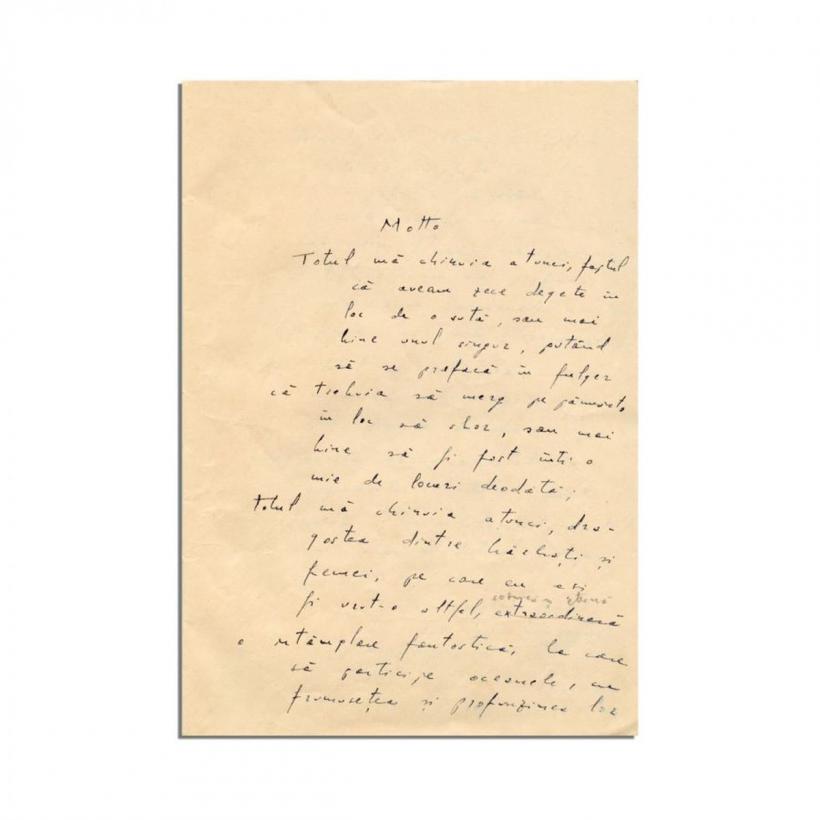 Motto
Totul mă chinuia atunci, faptul
că aveam zece degete în
loc de o sută, sau mai
bine unul singur, putând
să se prefacă în fulger
că trebuia să merg pe pământ,
în loc să zbor, sau mai
bine să fi fost într-o
mie de locuri deodată;
Totul mă chinuia atunci, dra-
gostea dintre bărbați și
femei, pe care eu aș
fi vrut-o altfel, extraordinară
o întâmplare fantastică, la care
să participe oceanele, cu
frumusețea și profunzimea lor